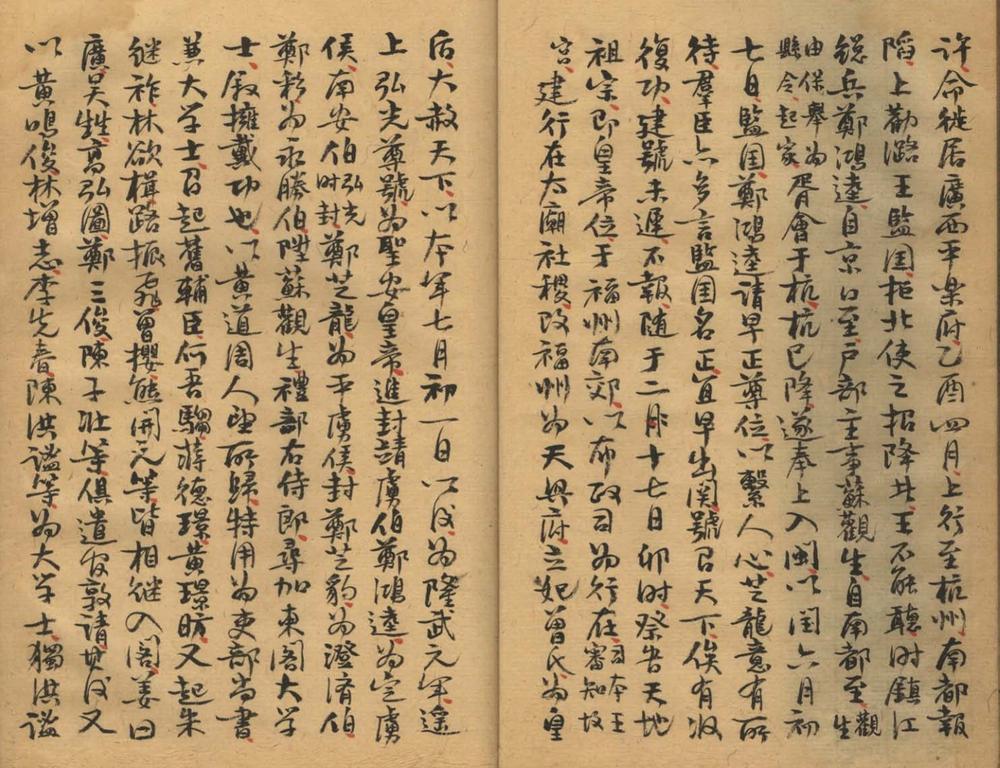 許命徙居廣西平樂府乙酉四月上行至杭州南都報
陷上勸潞王監國拒北使之招降北王不能聽时鎮江
總兵鄭鴻逵自京口至戶部主事蘇觀生自南都至觀生
由保舉為縣令起家胥會于杭杭已降遂奉上入閩以閏六月初
七日監国鄭鴻逵請早正尊位以繫人心芝龍意有所
待羣臣亦多言監国名正宜早出関號召天下俟有収
復功建號未遲不報随于二月十七日卯时祭告天地
祖宗即皇帝位于福州南郊以布政司为行在
宫建行在太廟社稷改福州为天興府立妃曾氏为皇
后大赦天下以本年七月初一日以後为隆武元年遙
上弘光尊號为聖安皇帝進封靖虜伯鄭鴻逵为定虜
侯南安伯弘光时封鄭芝龍为平虜侯封鄭芝豹为澄濟伯
鄭彩为永勝伯陞蘇觀生禮部右侍郎尋加東閣大学
士叙擁戴功也以黄道周人望所歸特用为吏部尚書
兼大学士召起舊輔臣何吾騶蒋德璟黄璟昉又起朱
継祚林欲楫路振飛曾櫻熊開元等皆相継入閣姜曰
廣吴甡高弘圖鄭三俊陳子壯等俱遣官敦請其後又
以黄鳴俊林增志李先春陳洪謐等为大学士獨洪謐